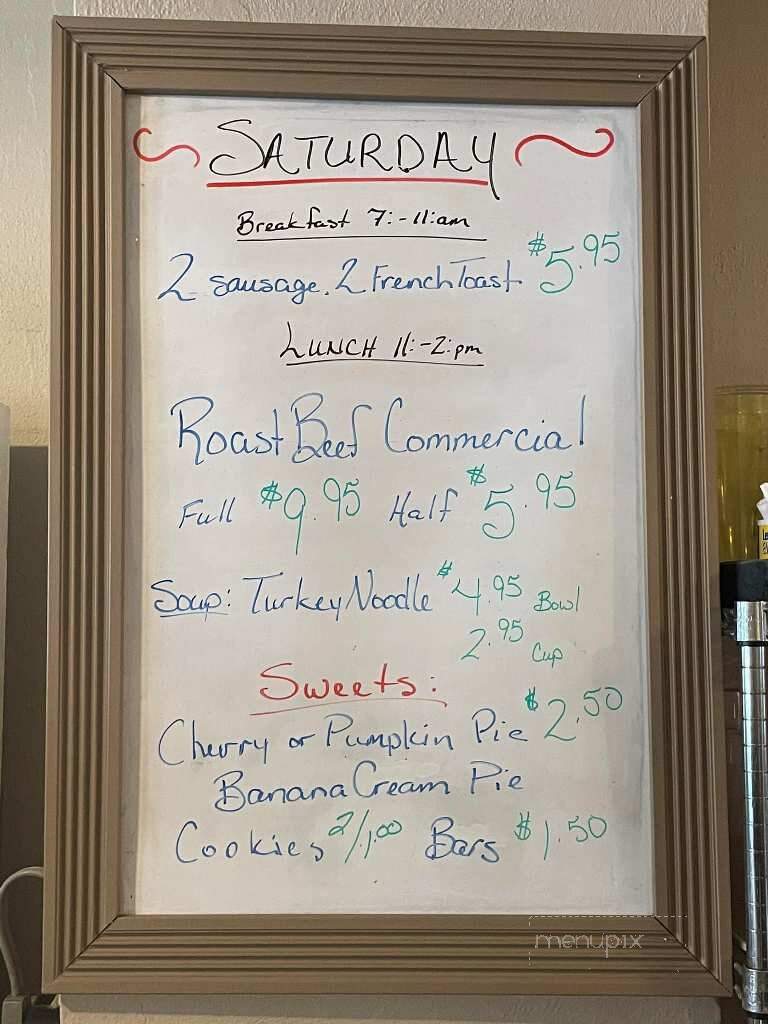 SATURDAY
Breakfast 7:-11:am
2 sausage. 2 French Toast $5.95
LUNCH 11:-2:pm
Roast Beef Commercial
Full $9.95 Half $5.95
Soup: Turkey Noodle $4.95 Bowl
2.95 Cup
Sweets:
Cherry or Pumpkin Pie $2.50
Banana Cream Pie
Cookies 2/1.00 Bars $1.50
menupix